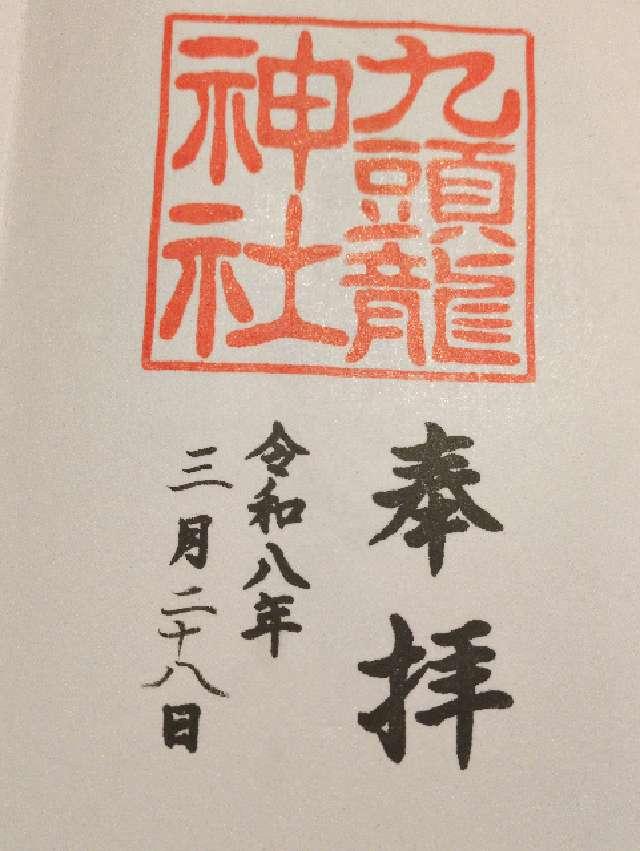 九頭龍
神社
奉拝
令和八年
三月二十八日